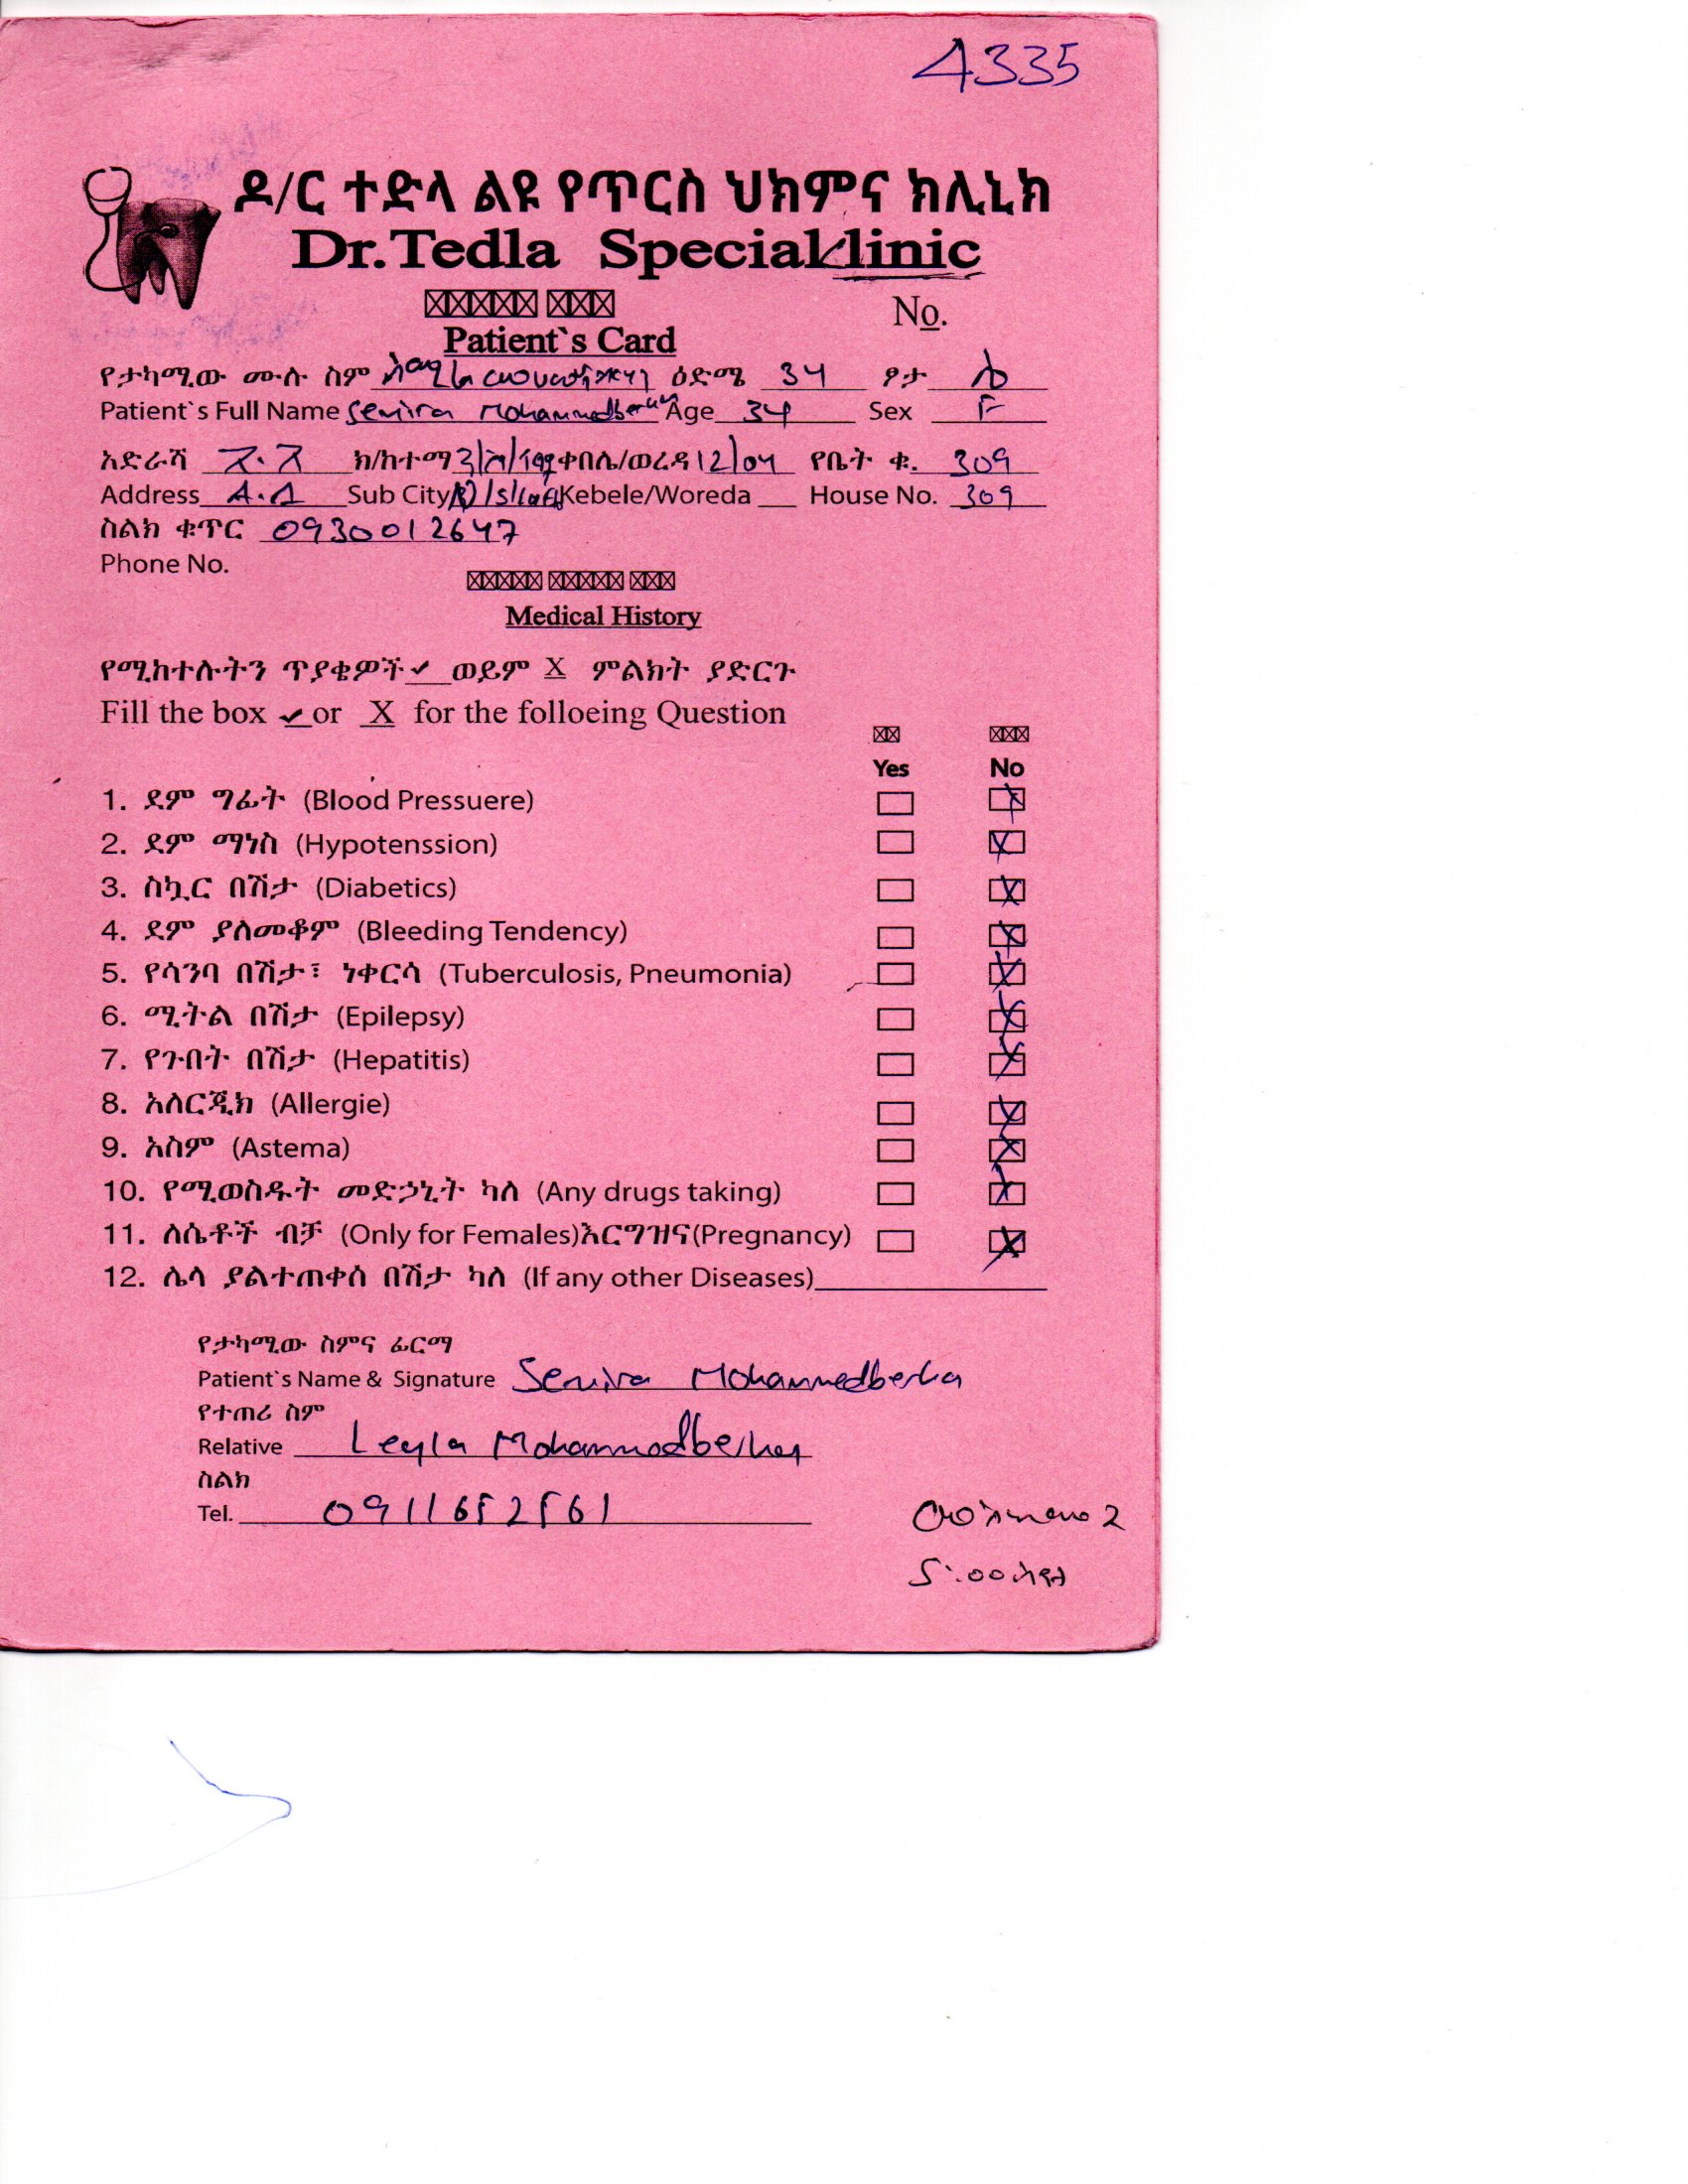 4335
ዶ/ር ተድላ ልዩ የጥርስ ህክምና ክሊኒክ
Dr.Tedla Special klinic
No.
Patient`s Card
የታካሚው ሙሉ ስም ዕድሜ 34 ፆታ ሴ
Patient`s Full Name Semira Mohammedberhan Age 34 Sex F
አድራሻ አ.አ ክ/ከተማ ቀበሌ/ወረዳ 12/04 የቤት ቁ. 309
Address A.A Sub City Kebele/Woreda House No. 309
ስልክ ቁጥር 0930012647
Phone No.
Medical History
የሚከተሉትን ጥያቄዎች ✔ ወይም X ምልክት ያድርጉ
Fill the box ✔ or X for the folloeing Question
Yes No
1. ደም ግፊት (Blood Pressuere)
2. ደም ማነስ (Hypotenssion)
3. ስኳር በሽታ (Diabetics)
4. ደም ያለመቆም (Bleeding Tendency)
5. የሳንባ በሽታ፣ ነቀርሳ (Tuberculosis, Pneumonia)
6. ሚትል በሽታ (Epilepsy)
7. የጉበት በሽታ (Hepatitis)
8. አለርጂክ (Allergie)
9. አስም (Astema)
10. የሚወስዱት መድኃኒት ካለ (Any drugs taking)
11. ለሴቶች ብቻ (Only for Females)እርግዝና(Pregnancy)
12. ሌላ ያልተጠቀሰ በሽታ ካለ (If any other Diseases)
የታካሚው ስምና ፊርማ
Patient`s Name & Signature Semira Mohammedberha
የተጠሪ ስም
Relative Leyla Mohammedberha
ስልክ
Tel. 0911652561